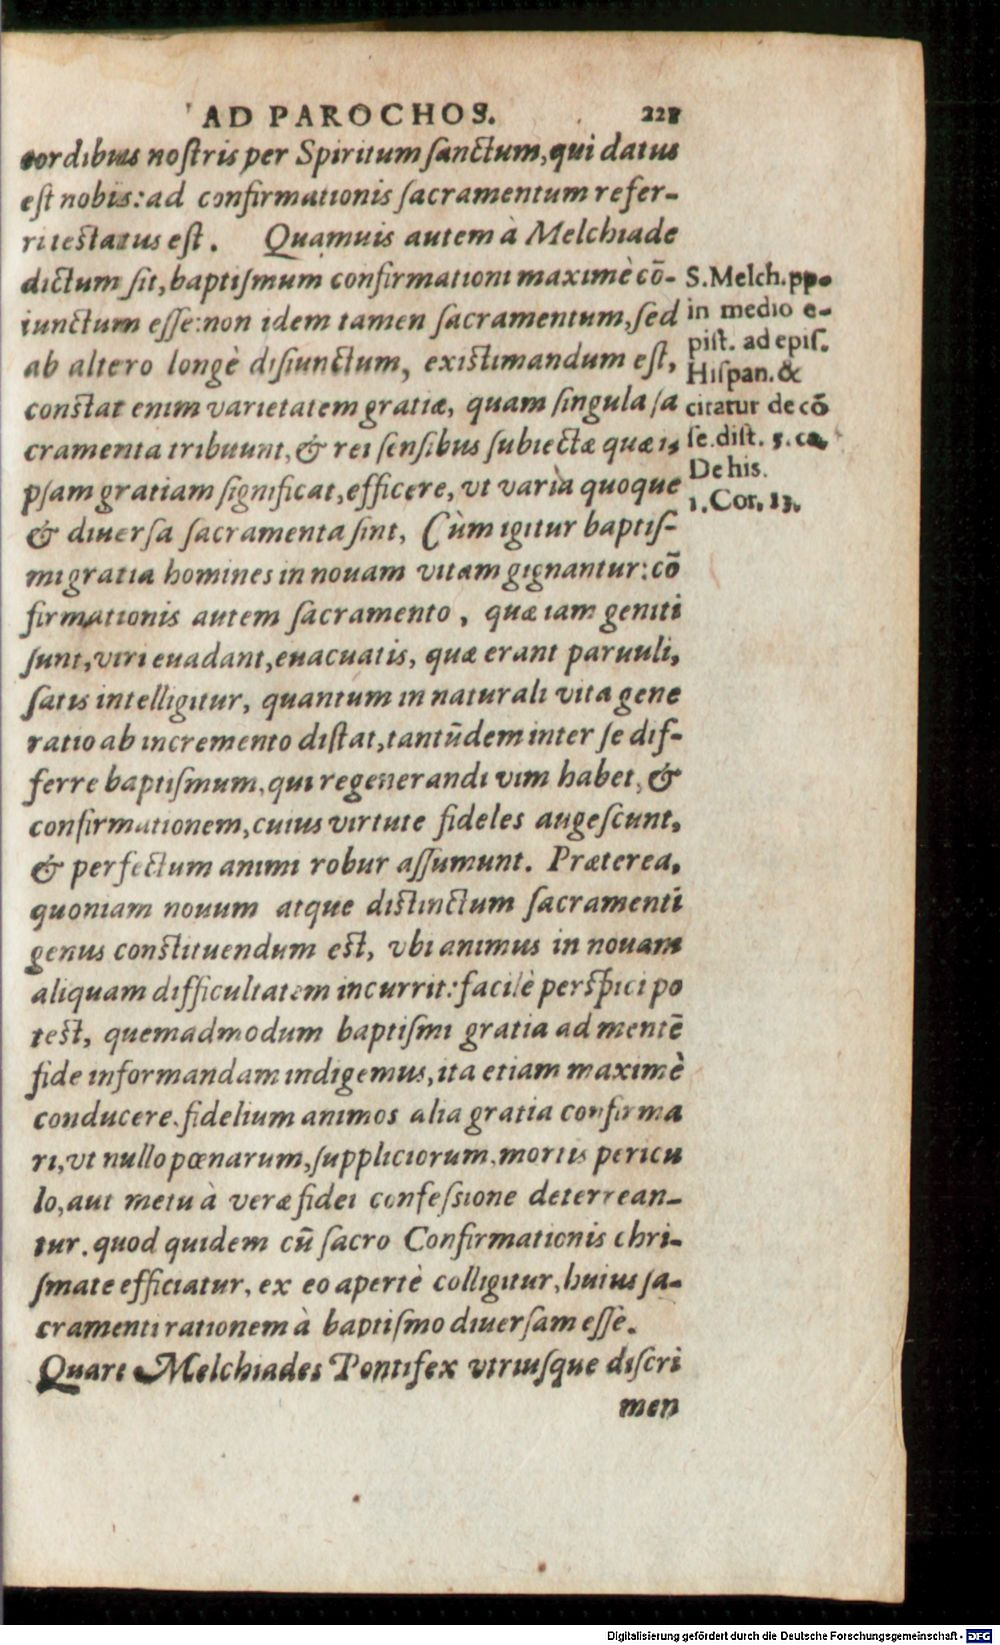 AD PAROCHOS.
cordibus nostris per Spiritum sanctum, qui datus
est nobis: ad confirmationis sacramentum refer-
ri testatus est. Quamuis autem à Melchiade
dictum sit, baptismum confirmationi maximè cō-
iunctum esse: non idem tamen sacramentum, sed
ab altero longè disiunctum, existimandum est,
constat enim varietatem gratiæ, quam singula sa
cramenta tribuunt, & rei sensibus subiectæ quæ i,
psam gratiam significat, efficere, vt varia quoque
& diuersa sacramenta sint, Cùm igitur baptis-
mi gratia homines in nouam vitam gignantur: cō
firmationis autem sacramento, quæ iam geniti
sunt, viri euadant, euacuatis, quæ erant paruuli,
satis intelligitur, quantum in naturali vita gene
ratio ab incremento distat, tantūdem inter se dif-
ferre baptismum, qui regenerandi vim habet, &
confirmationem, cuius virtute fideles augescunt,
& perfectum animi robur assumunt. Præterea,
quoniam nouum atque distinctum sacramenti
genus constituendum est, vbi animus in nouam
aliquam difficultatem incurrit: facilè perspici po
test, quemadmodum baptismi gratia ad mentē
fide informandam indigemus, ita etiam maximè
conducere. fidelium animos alia gratia confirma
ri, vt nullo pœnarum, suppliciorum, mortis pericu
lo, aut metu à veræ fidei confessione deterrean-
tur. quod quidem cū sacro Confirmationis chri-
smate efficiatur, ex eo apertè colligitur, huius sa-
cramenti rationem à baptismo diuersam esse.
Quare Melchiades Pontifex vtriusque discri
men
S. Melch. pp.
in medio e-
pist. ad epis.
Hispan. &
citatur de cō
se. dist. 5. ca.
De his.
1. Cor. 13.
Digitalisierung gefördert durch die Deutsche Forschungsgemeinschaft - DFG